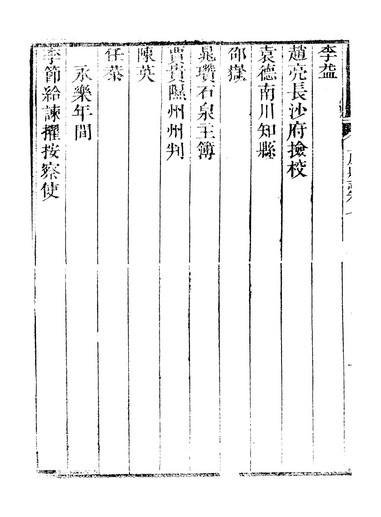 李益
趙亮長沙府撿校
袁德南川知縣
邵嶽
晁瓚石泉主簿
賈貴隰州州判
陳英
任泰
永樂年間
李節給諫擢按察使